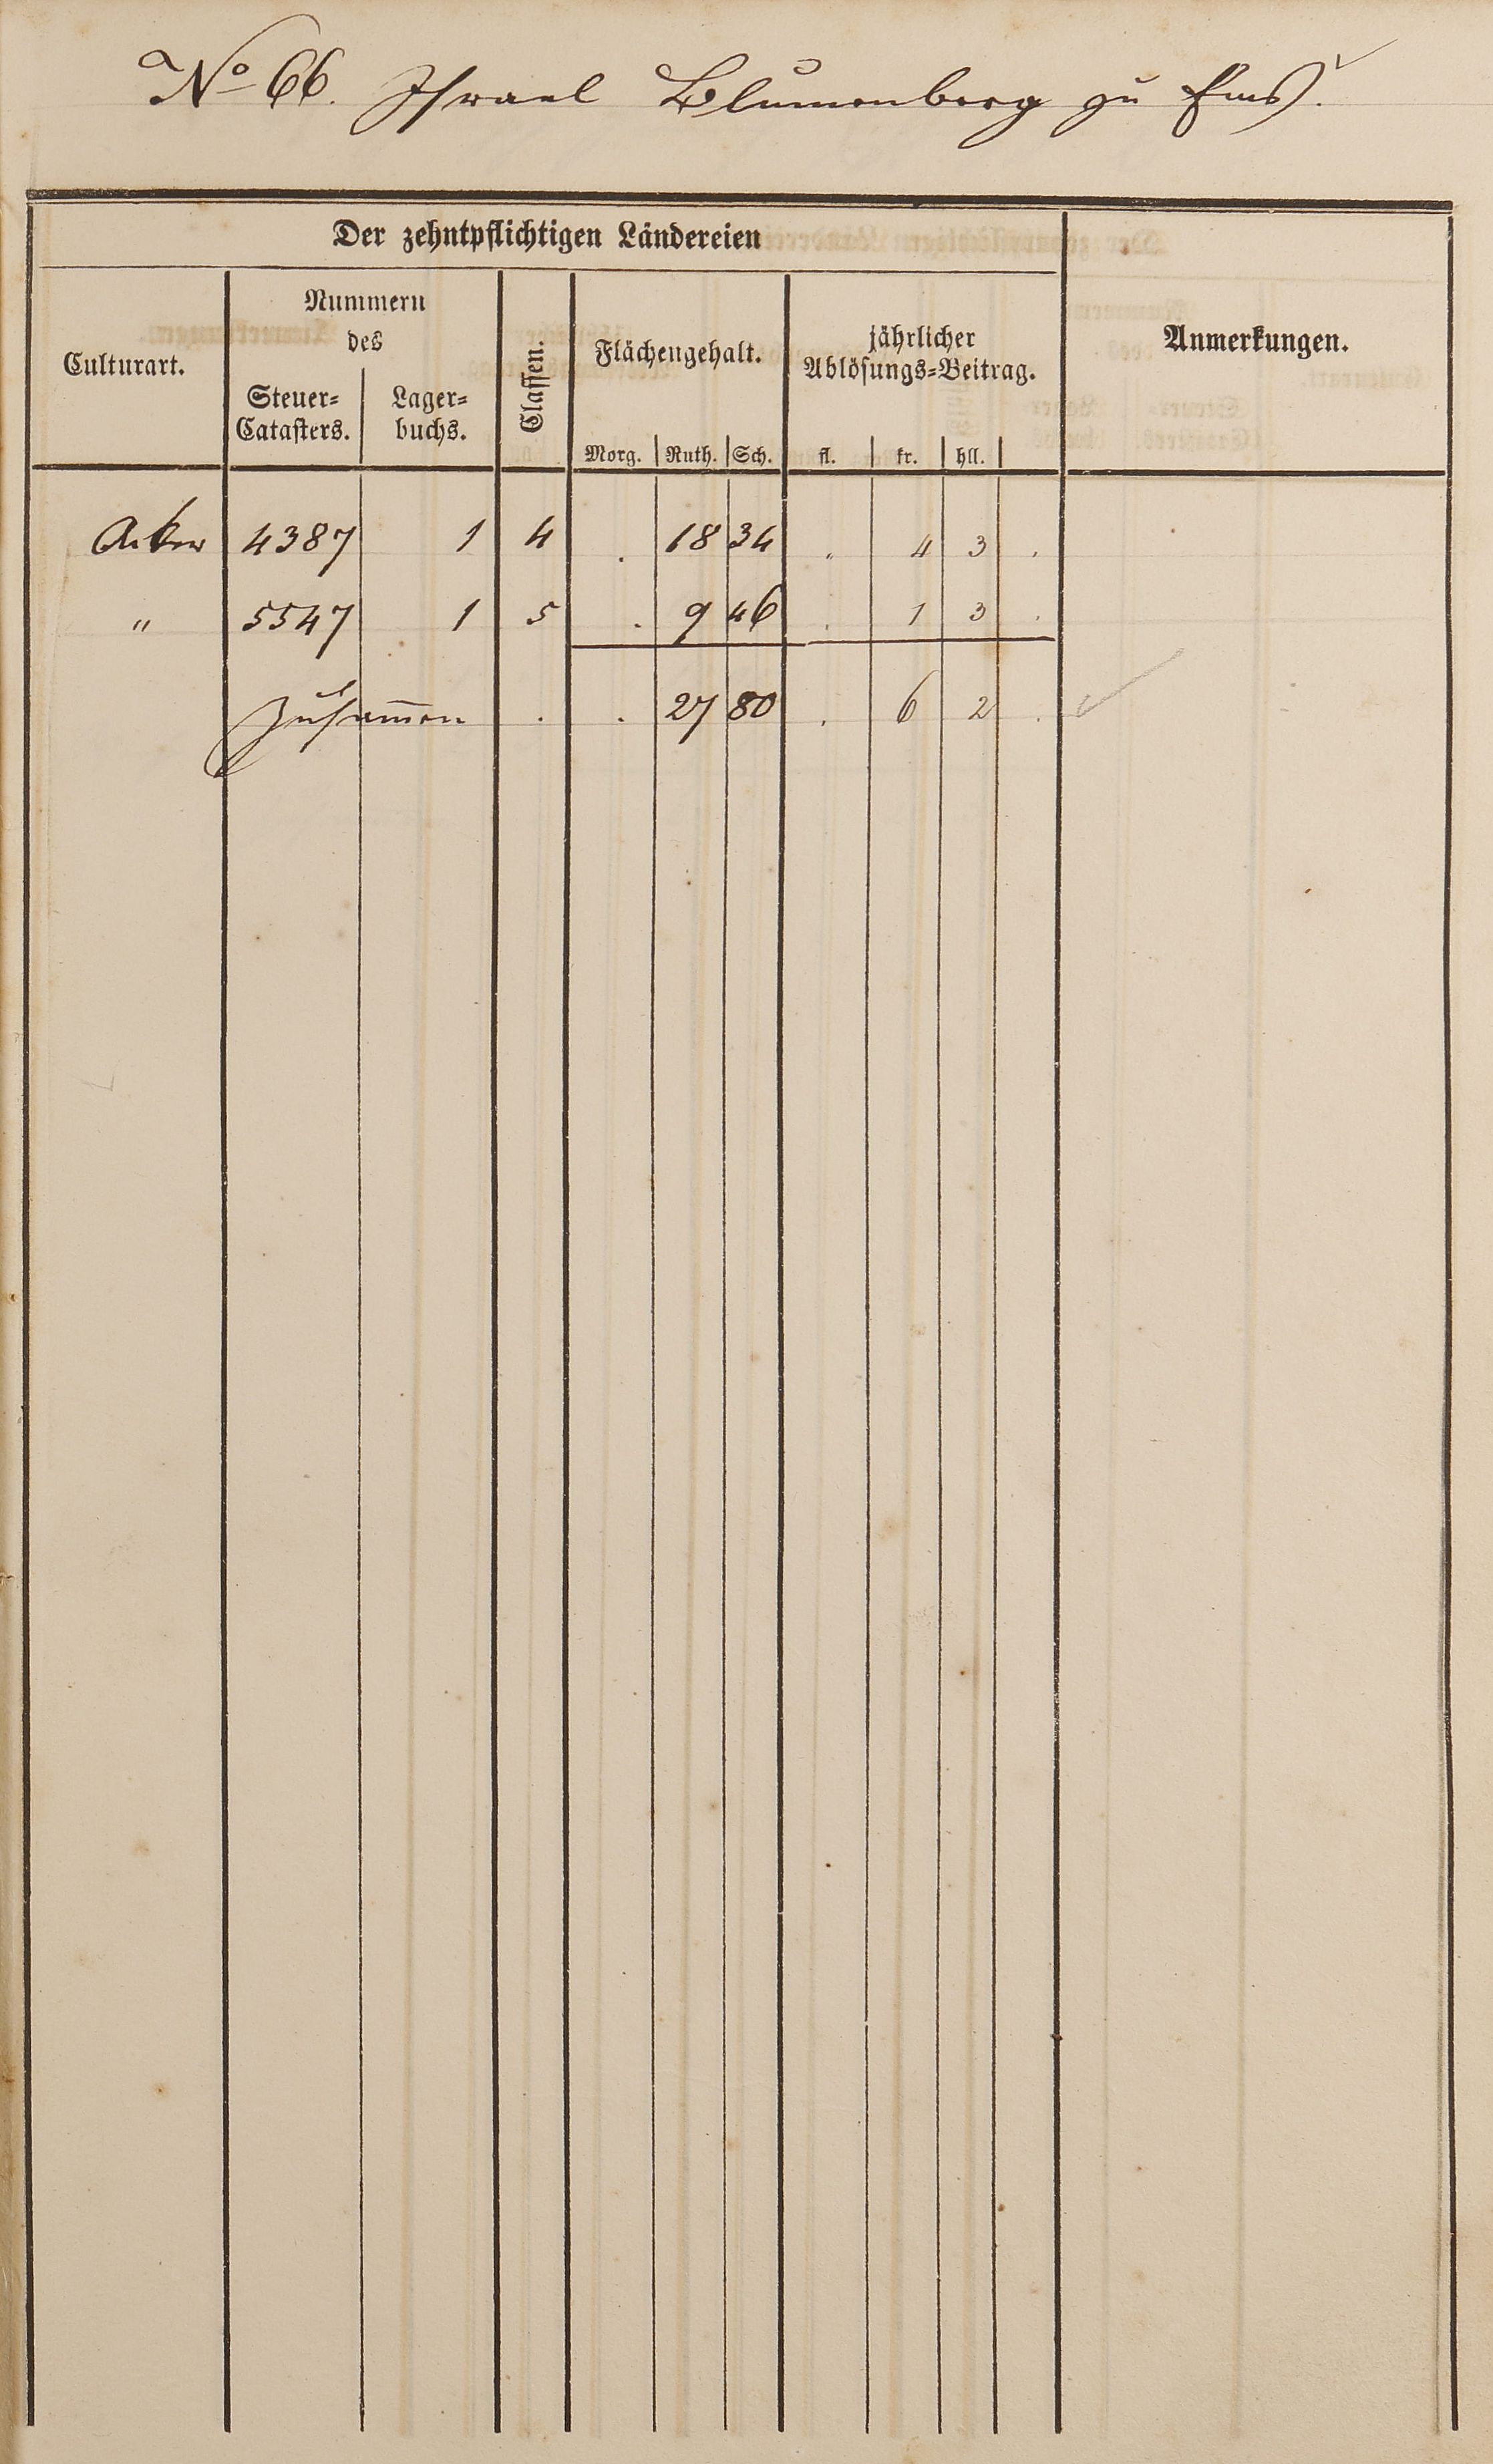 No 66. Israel Blumenberg zu Ems.
Der zehntpflichtigen Ländereien
Culturart.
Nummern
des
Steuer=
Catasters.
Lager=
buchs.
Classen.
Flächengehalt.
Morg. Ruth. Sch.
jährlicher
Ablösungs=Beitrag.
fl. kr. hll.
Anmerkungen.
Acker 4387 1 4 . 18 34 . 4 3 .
" 5547 1 5 . 9 46 . 1 3 .
Zusam̅en . . 27 80 . 6 2 .